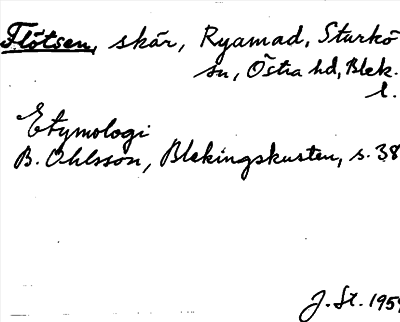 Flötsen, skär, Ryamad, Sturkö
sn, Östra hd, Blek.
l.
Etymologi
B. Ohlsson, Blekingskusten, s. 38
J. St. 1959